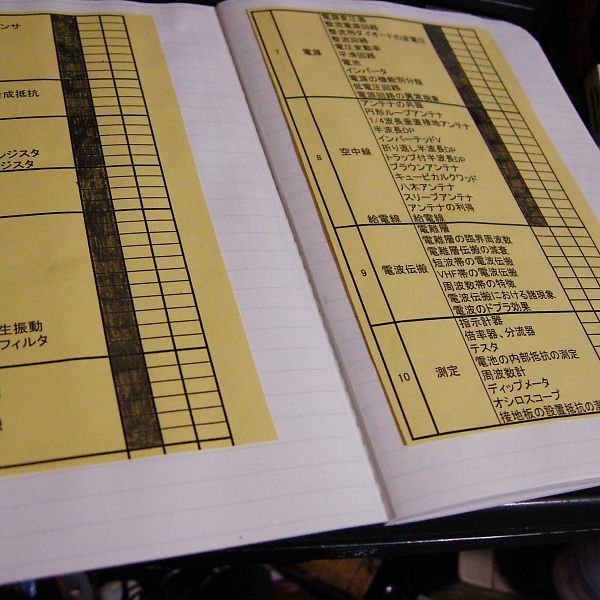 ンサ
成抵抗
ンジスタ
ジスタ
生振動
フィルタ
7 電源
電源変圧器
整流電源回路
整流用ダイオードの逆電圧
整流回路
電圧変動率
平滑回路
電池
インバータ
電源の機能別分類
低電圧回路
電源回路の異常現象
8 空中線
アンテナの共振
円形ループアンテナ
1/4波長垂直接地アンテナ
半波長DP
インバーテッドV
折り返し半波長DP
トラップ付半波長DP
ブラウンアンテナ
キュービカルクワッド
八木アンテナ
スリーブアンテナ
アンテナの利得
給電線 給電線
9 電波伝搬
電離層
電離層の臨界周波数
電離層伝搬の減衰
短波帯の電波伝搬
VHF帯の電波伝搬
周波数帯の特徴
電波伝搬における諸現象
電波のドプラ効果
10 測定
指示計器
倍率器、分流器
テスタ
電池の内部抵抗の測定
周波数計
ディップメータ
オシロスコープ
接地板の設置抵抗の測